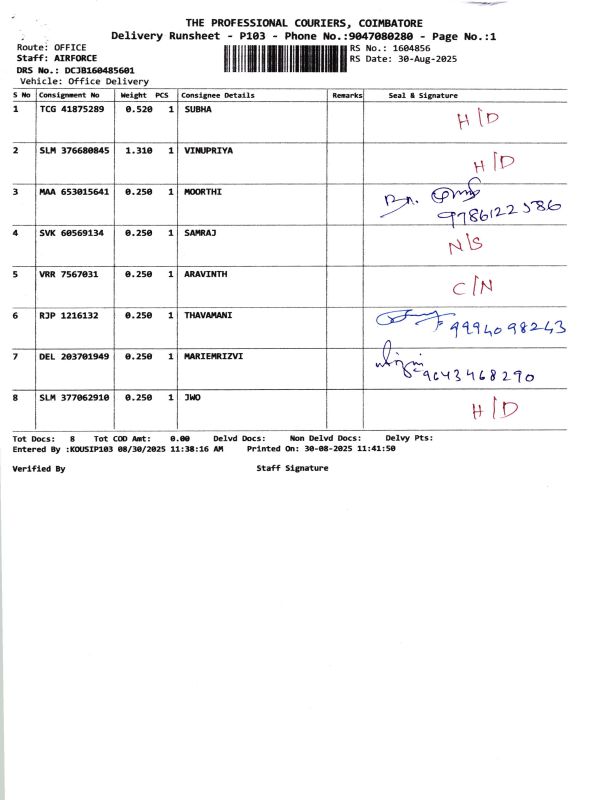 THE PROFESSIONAL COURIERS, COIMBATORE
Delivery Runsheet - P103 - Phone No.:9047080280 - Page No.:1
Route: OFFICE
RS No.: 1604856
Staff: AIRFORCE
RS Date: 30-Aug-2025
DRS No.: DCJB160485601
Vehicle: Office Delivery
S No Consignment No Weight PCS Consignee Details Remarks Seal & Signature
1 TCG 41875289 0.520 1 SUBHA H/D
2 SLM 376680845 1.310 1 VINUPRIYA H/D
3 MAA 653015641 0.250 1 MOORTHI
9786122586
4 SVK 60569134 0.250 1 SAMRAJ N/S
5 VRR 7567031 0.250 1 ARAVINTH C/N
6 RJP 1216132 0.250 1 THAVAMANI 9994098243
7 DEL 203701949 0.250 1 MARIEMRIZVI
9643468290
8 SLM 377062910 0.250 1 JWO H/D
Tot Docs: 8 Tot COD Amt: 0.00 Delvd Docs: Non Delvd Docs: Delvy Pts:
Entered By :KOUSIP103 08/30/2025 11:38:16 AM Printed On: 30-08-2025 11:41:50
Verified By Staff Signature